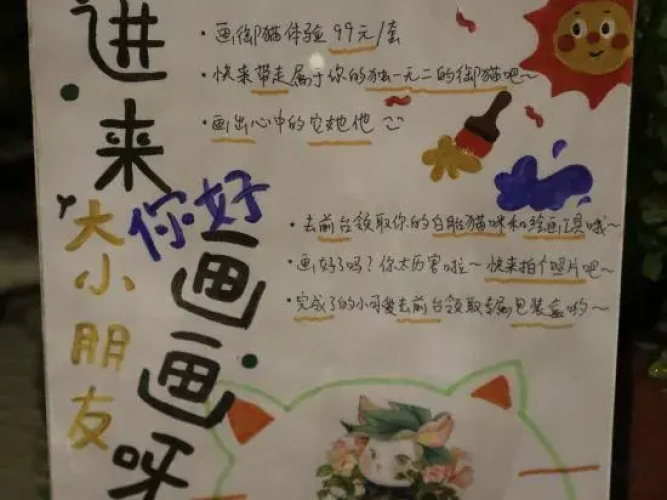 进来画画呀
大小朋友
你好
·画御猫体验 99元/套
·快来带走属于你的独一无二的御猫吧~
·画出心中的它她他
·去前台领取你的白胎猫咪和绘画工具哦~
·画好了吗?你太厉害啦~快来拍个照片吧~
·完成了的小可爱去前台领取专属包装盒哟~